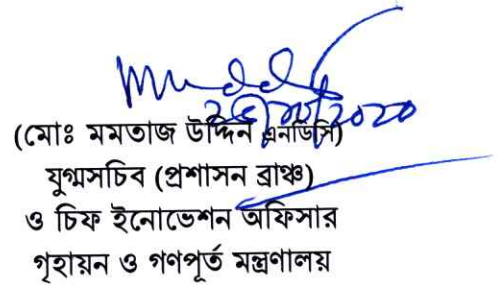 (মোঃ মমতাজ উদ্দিন এনডিসি)
যুগ্মসচিব (প্রশাসন ব্রাঞ্চ)
ও চিফ ইনোভেশন অফিসার
গৃহায়ন ও গণপূর্ত মন্ত্রণালয়